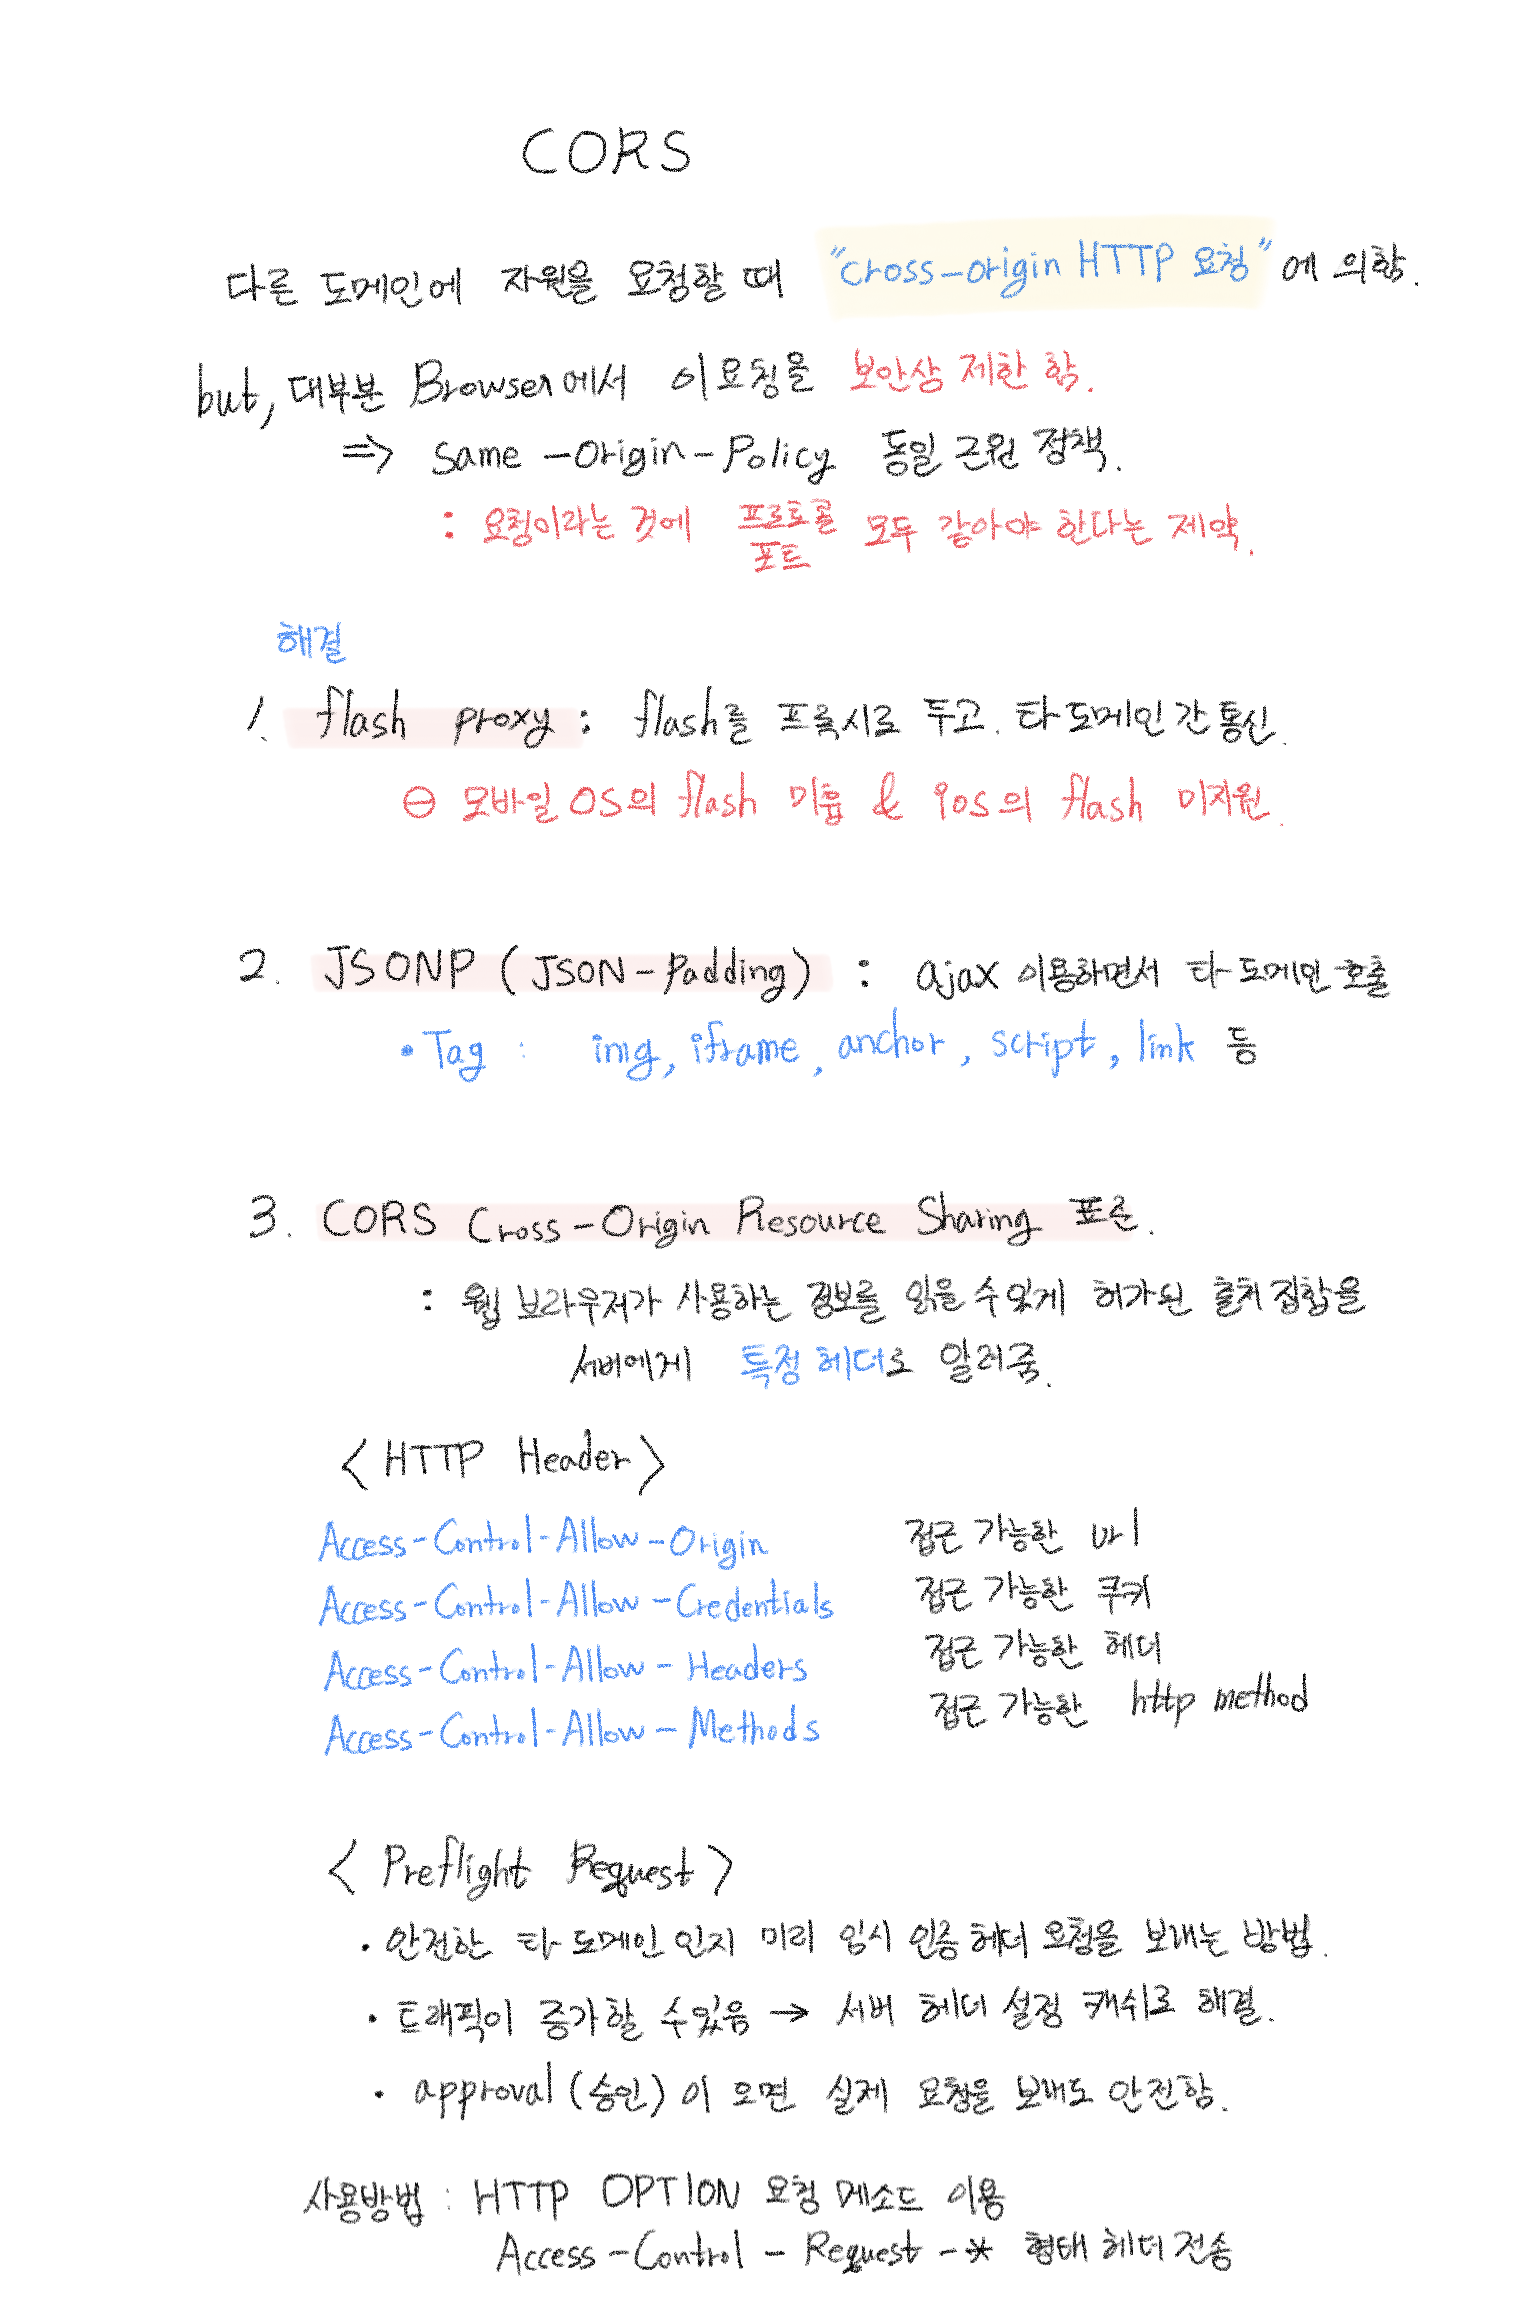 CORS
다른 도메인에 자원을 요청할 때 "cross-origin HTTP 요청"에 의함.
but, 대부분 Browser에서 이 요청을 보안상 제한 함.
=> Same-Origin-Policy 동일 근원 정책.
: 요청이라는 것에 프로토콜 모두 같아야 한다는 제약.
포트
해결
1. flash proxy : flash를 프록시로 두고. 타 도메인 간 통신.
⊖ 모바일 OS의 flash 미흡 & ios의 flash 미지원.
2. JSONP (JSON-Padding) : ajax 이용하면서 타 도메인 호출
• Tag : img, iframe, anchor, script, link 등
3. CORS Cross-Origin Resource Sharing 표준.
: 웹 브라우저가 사용하는 정보를 읽을 수 있게 허가된 출처 집합을
서버에게 특정 헤더로 알려줌.
<HTTP Header>
Access-Control-Allow-Origin 접근 가능한 url
Access-Control-Allow-Credentials 접근 가능한 쿠키
Access-Control-Allow-Headers 접근 가능한 헤더
Access-Control-Allow-Methods 접근 가능한 http method
< Preflight Request >
• 안전한 타 도메인 인지 미리 임시 인증 헤더 요청을 보내는 방법.
• 트래픽이 증가할 수 있음 → 서버 헤더 설정 캐쉬로 해결.
• approval(승인)이 오면 실제 요청을 보내도 안전함.
사용방법 : HTTP OPTION 요청 메소드 이용
Access-Control-Request-* 형태 헤더 전송